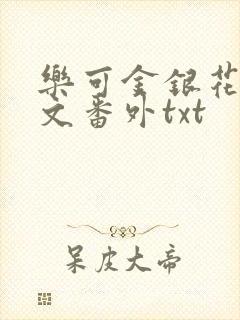 樂可金銀花
文番外txt
呆皮大帝